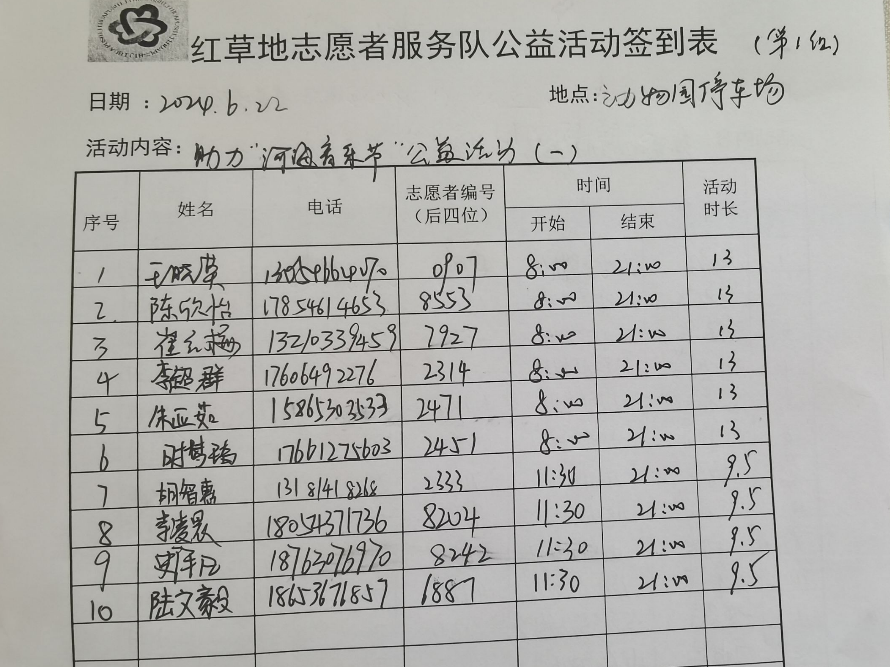 红草地志愿者服务队公益活动签到表 (第1组)
日期：2024.6.22 地点：动物园停车场
活动内容：助力"河海音乐节"公益活动(一)
序号 姓名 电话 志愿者编号（后四位） 时间 开始 结束 活动时长
1 王晓英 0907 8:00 21:00 13
2 陈欣怡 17854614653 8553 8:00 21:00 13
3 崔红梅 13210339459 7927 8:00 21:00 13
4 李超群 17606492276 2314 8:00 21:00 13
5 朱亚茹 15865303533 2471 8:00 21:00 13
6 17661275603 2451 8:00 21:00 13
7 胡智惠 13181418268 2333 11:30 21:00 9.5
8 李凌晨 18054371736 8204 11:30 21:00 9.5
9 18763076970 8242 11:30 21:00 9.5
10 陆文毅 18653671857 1887 11:30 21:00 9.5